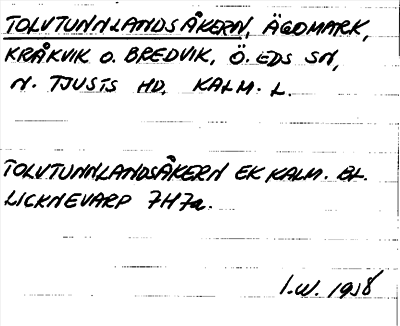 TOLVTUNNLANDSÅKERN, ÄGOMARK,
KRÅKVIK O. BREDVIK, Ö. EDS SN,
N. TJUSTS HD, KALM. L.
TOLVTUNNLANDSÅKERN EK KALM. BL.
LICKNEVARP 7H7a.
I.W. 1958